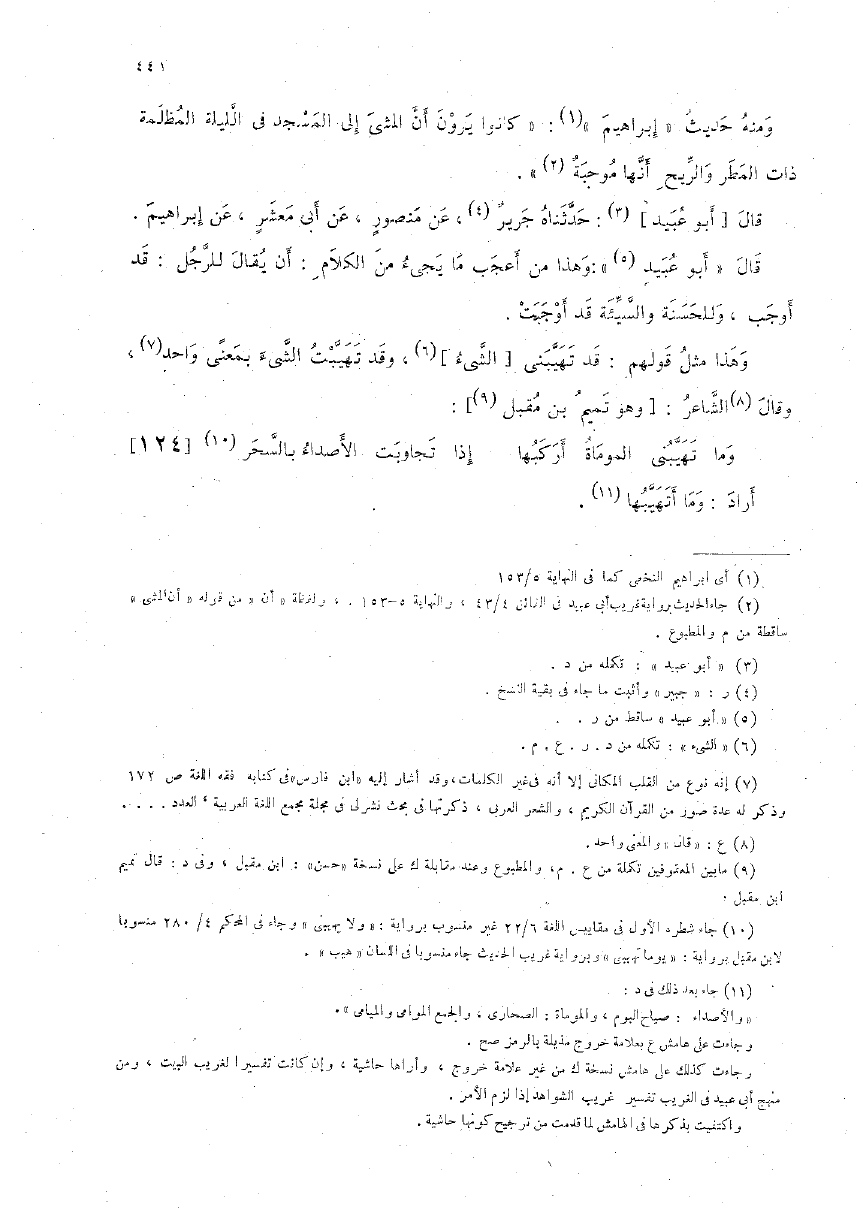 ٤٤١
وَمنهُ حَديثُ « إبراهيمَ »(١) : « كانوا يَرَوْنَ أَنَّ المشىَ إلى المَسْجد فى الَّليلة المُظلَمة
ذات المَطَر وَالرِّيح أَنَّها مُوجبَةٌ (٢) » .
قالَ [ أبو عُبَيد ] (٣) : حَدَّثَناهُ جَريرٌ (٤) ، عَن مَنصورٍ ، عَن أَبى مَعشَرٍ ، عَن إبراهيمَ .
قَالَ « أَبو عُبَيد (٥) »: وَهذا من أَعجَب مَا يَجىءُ منَ الكلَام : أَن يُقالَ للرَّجُل : قَد
أَوجَب ، وَللحَسَنَة والسَّيِّئَة قَد أَوْجَبَتْ .
وَهَذا مثلُ قَولهم : قَد تَهَيَّبَنى [ الشَّىءُ ](٦) ، وقَد تَهَيَّبْتُ الشَّىءَ بمَعنًى وَاحد(٧) ،
وقالَ (٨) الشَّاعرُ : [ وهوَ تَميمُ بن مُقبل (٩)] :
وَما تَهَيَّبُنى المومَاةُ أَركَبُها إذا تَجاوبَت الأَصداءُ بالسَّحَر (١٠) [١٢٤]
أَرادَ : وَمَا أَتَهَيَّبُها (١١) .
(١) أى ابراهيم النخعى كما فى النهاية ١٥٣/٥
(٢) جاء الحديث برواية غريب أبى عبيد فى الفائق ٤٣/٤ ، والنهاية ٥-١٥٣ . ، ولفظة « أن » من قوله « أن المشى »
ساقطة من م والمطبوع .
(٣) « أبو عبيد » : تكمله من د .
(٤) ر : « جبير » وأثبت ما جاء فى بقية النسخ .
(٥) « أبو عبيد » ساقط من ر . .
(٦) « الشىء » : تكمله من د . ر . ع . م .
(٧) إنه نوع من القلب المكانى إلا أنه فى غير الكلمات، وقد أشار إليه «ابن فارس» فى كتابه فقه اللغة ص ١٧٢
وذكر له عدة صور من القرآن الكريم ، والشعر العربى ، ذكرتها فى بحث نشر لى فى مجلة مجمع اللغة العربية ، العدد . . . .
(٨) ع : « قال » والمعنى واحد.
(٩) مابين المعقوفين تكملة من ع . م، والمطبوع وعند مقابلة ك على نسخة «حسن» : ابن مقبل ، وفى د : قال تميم
ابن مقبل :
(١٠) جاء شطره الأول فى مقاييس اللغة ٢٢/٦ غير منسوب برواية : « ولا تهيبنى » وجاء فى المحكم ٤/ ٢٨٠ منسوبا
لابن مقبل برواية : « يوما تهيبنى » وبرواية غريب الحديث جاء منسوبا فى اللسان « هيب » .
(١١) جاء بعد ذلك فى د :
« والأصداء : صياح البوم ، والموماة : الصحارى ، والجمع الموامى والميامى » .
وجاءت على هامش ع بعلامة خروج مذيلة بالرمز صح .
وجاءت كذلك على هامش نسخة ك من غير علامة خروج ، وأراها حاشية ، وإن كانت تفسيرا لغريب البيت ، ومن
منهج أبى عبيد فى الغريب تفسير غريب الشواهد إذا لزم الأمر .
واكتفيت بذكرها فى الهامش لما قدمت من ترجيح كونها حاشية .